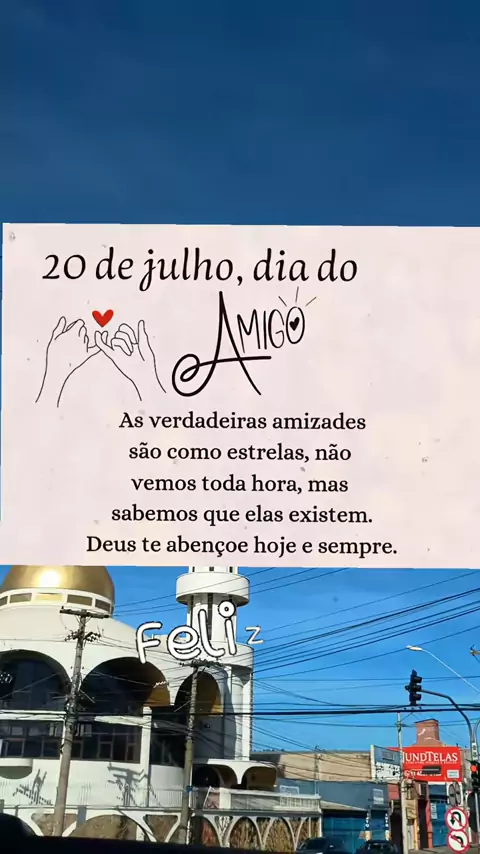 20 de julho, dia do
AMIGO
As verdadeiras amizades
são como estrelas, não
vemos toda hora, mas
sabemos que elas existem.
Deus te abençoe hoje e sempre.
Feliz
UNDTELAS